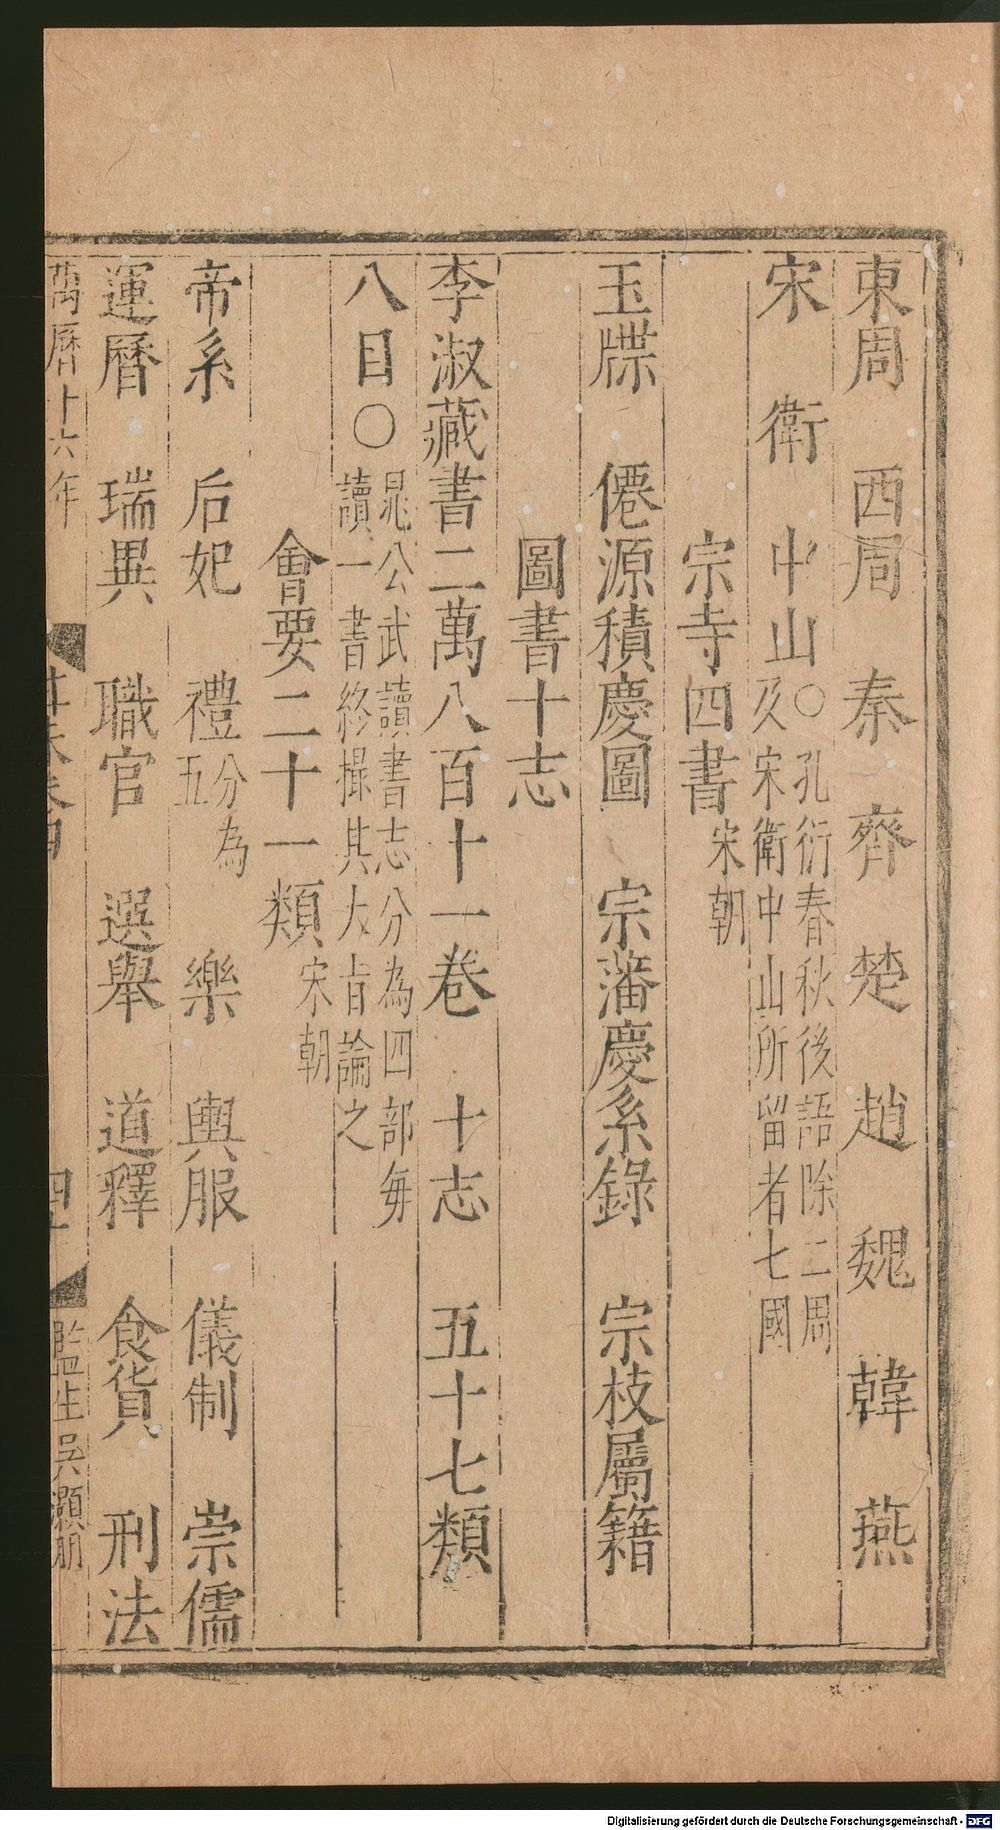 東周 西周 秦 齊 楚 趙 魏 韓 燕
宋 衛 中山○孔衍春秋後語除二周
及宋衛中山所留者七國
宗寺四書宋朝
玉牒 僊源積慶圖 宗藩慶系錄 宗枝屬籍
圖書十志
李淑藏書二萬八百十一卷 十志 五十七類
八目○晁公武讀書志分為四部每
讀一書終撮其大旨論之
會要二十一類宋朝
帝系 后妃 禮分為五 樂 輿服 儀制 崇儒
運曆 瑞異 職官 選舉 道釋 食貨 刑法
萬曆十六年 四 監生吳灝
Digitalisierung gefördert durch die Deutsche Forschungsgemeinschaft - DFG